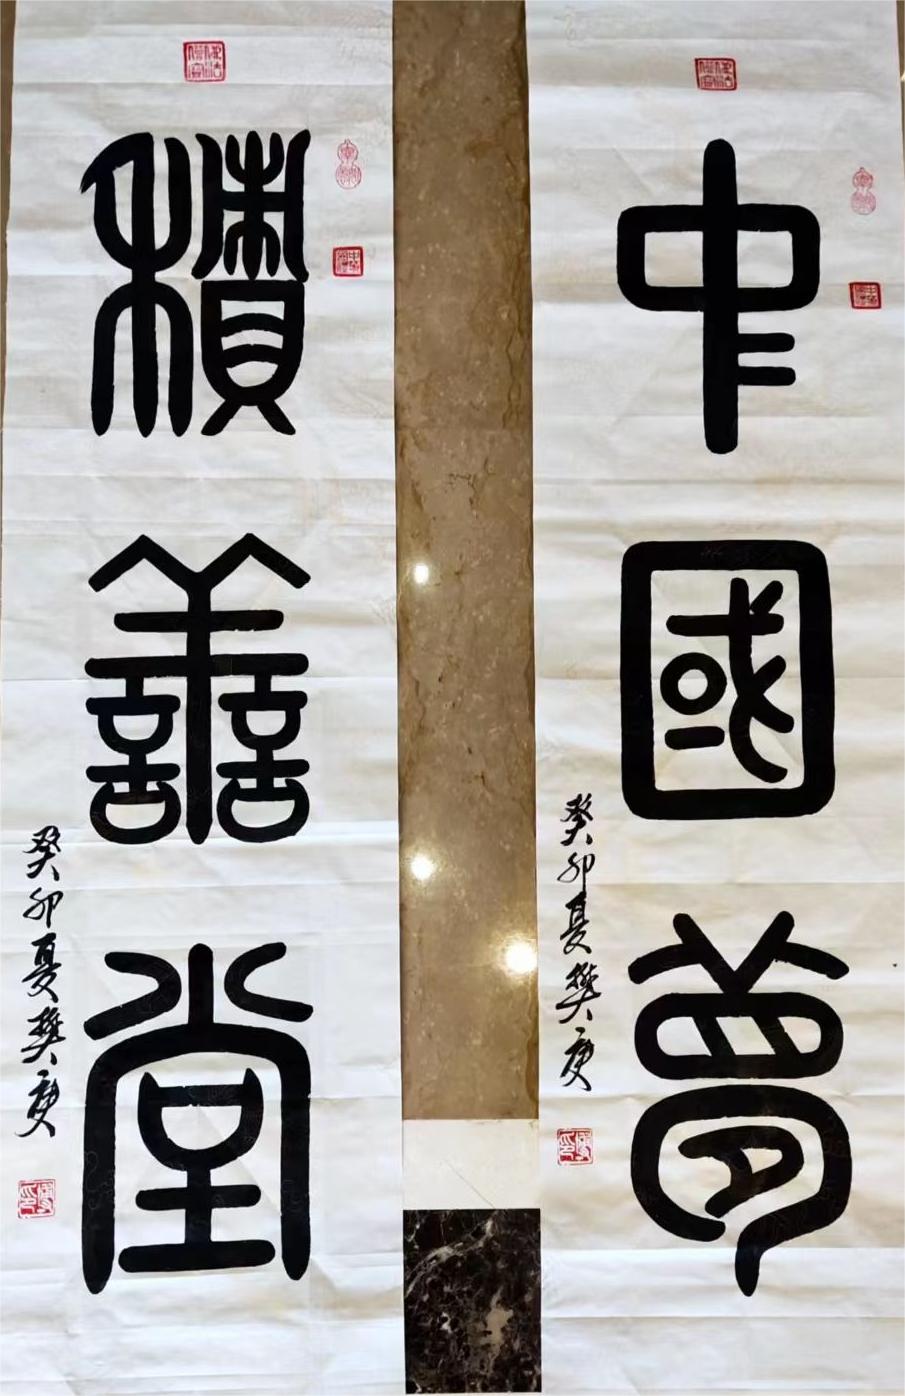 中國夢
癸卯夏樊庚
積善堂
癸卯夏樊庚